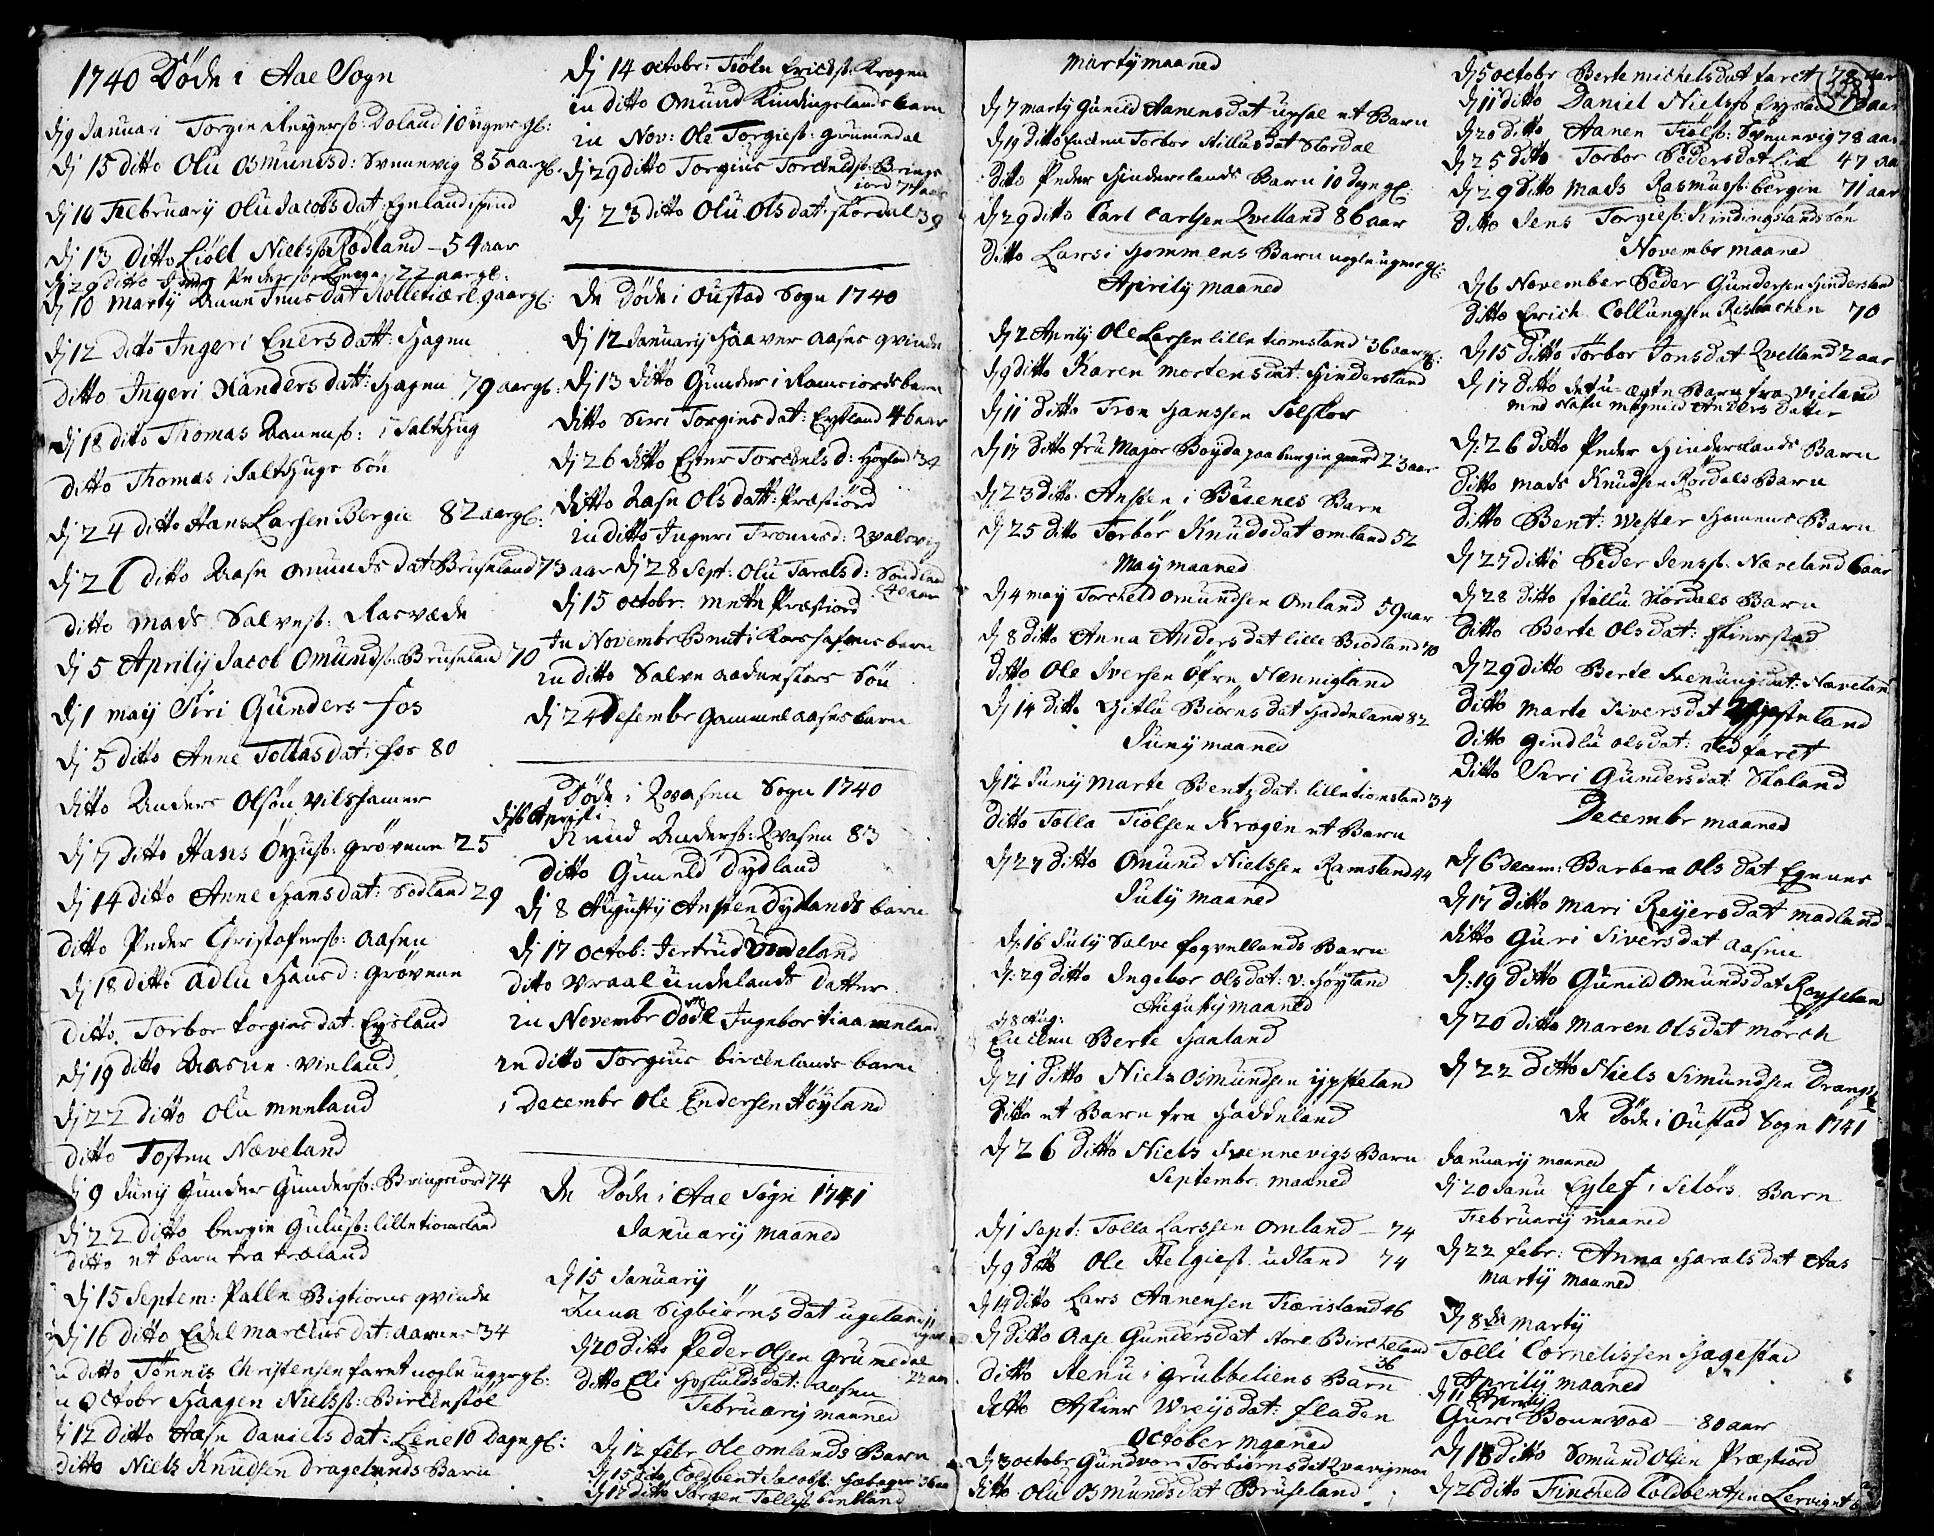 1740 Døde i Aae Sogn
Dj 9 Januari Torgiu Reyersß: Doland 10 uger gl:
Dj 15 ditto Olu Osmundsd: Svennevig 85 aar gl.
Dj 10 Februarij Olu Jacobsdat: Egeland
Dj 13 ditto Nielssß Rødland – 54 aar
Dj 29 ditto 22 aar gl:
Dj 10 Martij Anne Jensdat 9 aar gl:
Dj 12 ditto Ingeri Enersdatt: Hagen
ditto Ingeri Xandersdatt: Hagen 79 aar gl:
Dj 18 dito Thomas Aanensß: i
ditto Thomas Søn
Dj 24 ditto Hans Larsen Bergie 82 aar gl:
Dj 26 ditto Aase Omundsdat Bruseland 73 aar
ditto Mads Salvesß: Rasvæde
Dj 5 Aprilij Jacob Omundsß: Bruseland 70
Dj 1 Maij Siri Gunders Fos
Dj 5 ditto Anne Tollasdat: Fos 80
ditto Anders Olsøn Vilshamer
Dj 7 ditto Hans Øyusß: Grøvene 25
Dj 14 ditto Anne Hansdat: Sodland 29
ditto Peder Christofersß: Aasen
Dj 18 ditto Adlu Hansd: Grøvene
ditto Torbor Torgiusdat: Eysland
Dj 19 ditto Aasne Vinland
Dj 22 ditto Olu Meeland
ditto Tosten Næveland
Dj 9 Junij Gunder Gundersß: Bringsiord 74
Dj 22 ditto Bergie Gulusß: Lilletiomsland
ditto et barn fra Træland
Dj 15 Septem: Palle Bigtiorns qvinde
Dj 16 ditto Edel Marchusdat: Aavnes 34
ditto Tønnis Christensen Faret nogle uger gl:
Octobr Haagen Nielsß: Birchenstøl
Dj 12 ditto Aase Danielsdat: Lene 10 Dage gl:
ditto Niels Knudsen Dragelunds Barn
Dj 14 octobr: Tiøls Erichsß: Krogen
in ditto Omund Kindingslands barn
in Nov: Ole Torgiesß: Grumedal
Dj 29 ditto Torgius Torcheldsß: Brings
iord 74 aar
Dj 23 ditto Olu Olsdat: Størdal 39
De Døde i Oustad Sogn 1740
Dj 12 Januarij Haaver Aases qvinde
Dj 13 ditto Gunder i Ramsiords barn
ditto Seri Torgiusdat: Eysland 46 aar
Dj 26 ditto Ester Torchelsd: Høyland 34
ditto Aase Olsdatt: Præstiord
in ditto Ingeri Tronesd: Qvalsvig
Dj 28 Sept: Olu Taralsd: Sondland
40 aar
Dj 15 octobr: Mette Præstiord
In Novembr Bent i Korshafns barn
in ditto Salve Aadnestørs Søn
Dj 24 Desembr Gammel Aases barn
Døde i Qvasen Sogn 1740
Dj 16 April:
Knud Andersß: Qvasen 83
ditto Guneld Dydland
Dj 8 Augustij Ansten Dydlands barn
Dj 17 octob: Jertrud Undeland
ditto Vraal Undelands datter
in Novembr Døde Ingebor Tiaameland
in ditto Torgius Birchelands barn
1 Decembr Ole Endersen Høyland
De Døde i Aae Sogn 1741
Januarij maaned
Dj 15 Januarij
Anna Sigbiørnsdat Ugeland 11
uger
Dj 20 ditto Peder Olsen Grumedal
22 aar
ditto Eli Hoskuldsdat: Aasen
Februarij maaned
Dj 12 febr Ole Omlands Barn
Dj 15 dito Coldbent Jacobsß: 36 aar
Dj 17 ditto Jørgen Tollisß: Birkland
Martij maaned
Dj 7 martij Gunild Aanensdat Upsal et Barn
Dj 19 ditto Enken Torbor Nillusdat Stordal
Ditto Peder Hinderslands Barn 10 Dage gl:
Dj 29 ditto Carl Carlsen Qvelland 86 aar
ditto Lars i Hommens Barn nogle uger gl:
Aprilij maaned
Dj 2 Aprilij Ole Larsen lilletiomsland 36 aar gl:
Dj 9 ditto Karen Mortensdat: Hindersland
Dj 11 ditto Tron Hanssen Selskor
Dj 17 ditto fru Major Boyda paa Bergie gaard 23 aar
Dj 23 ditto Ansten i Buenes Barn
Dj 25 ditto Torbor Knudsdat Omland 52
May maaned
Dj 4 may Torcheld Omundsen Omland 59 aar
Dj 8 ditto Anna Andersdat lille Biodland 70
ditto Ole Iversen Øfre Nennigland
Dj 14 ditto Gitlu Biørnsdat Haddeland 82
Junij maaned
Dj 12 Junij Marte Bentzdat: lilletiomsland 34
ditto Tolla Tiølsen Krogen et Barn
Dj 27 ditto Omund Nielssen Ramsland 44
Julij maaned
Dj: 16 Julij Salve Fogvellands Barn
Dj: 29 ditto Ingebor Olsdat: V: Høyland
Augustij maaned
Dj 8 Aug:
Enchen Berte Haaland
Dj 21 ditto Niels Osmundsen Ypsteland
ditto et Barn fra Haddeland
Dj 26 ditto Niels Svennevigs Barn
Septembr: maaned
Dj 1 Sept: Tolla Larssen Omland – 74
Dj 9 ditto Ole Helgiesß: Udland 74
Dj 14 ditto Lars Aanensen Tiærisland 46
Dj ditto Aase Gundersdat store Bircheland
36
ditto Stenu i Grubbeliens Barn
ditto Askier Wreysdat: Fladen
October maaned
Dj 3 octobr Gundvor Torbiørnsdat Qvavigmoe
ditto Olu Osmundsdat Bruseland
Dj 5 octobr Berte Michelsdat Faret 78 aar
Dj 11 ditto Daniel Nielsß: Eysland
Dj 20 ditto Aanen Tiølsß: Svennevig 78 aar
Dj 25 ditto Torbor Pedersdat Lie 47 aa
Dj 29 ditto Mads Rasmusß: Bergie 71 aar
ditto Jens Torgiesß: Kindingslands Søn
Novembr maaned
Dj 6 November Peder Gundersen Hindersland
ditto Erich Collungsen Risbachen 70
Dj 15 ditto Torbor Jonsdat Qvelland 2 aar
Dj 17 ditto det u-ægte Barn fra Vieland
med Nafn Magnild Anders Datter
Dj: 26 ditto Peder Hinderslands Barn
ditto Mads Knudsen Rørdals Barn
ditto Bent: Wester Hamens Barn
Dj 27 ditto Peder Jensß: Næveland 6 aar
Dj 28 ditto Stellu Stordals Barn
ditto Berte Olsdat: Skierstad
Dj 29 ditto Berte Svenungsdat: Næveland
ditto Marte Siversdat Ypsteland
ditto Gundlu Olsdat: Ved Faret
ditto Siri Gundersdat: Skoland
Decembr maaned
Dj 6 Decem: Barbara Olsdat Egenes
Dj 17 ditto Mari Reyersdat Madland
ditto Guri Siversdat Aasen
Dj: 19 ditto Gunild Omundsdat Røyseland
Dj 20 ditto Maren Olsdat Mørch
Dj 22 ditto Niels Simundsen Drangs
De Døde i Oustad Sogn 1741
Januarij maaned
Dj 20 Janu Eylef i Selørs Barn
Februarij maaned
Dj 22 febr: Anna Haralsdat Aas
Martij maaned
Dj 8de Martij
Tolli Cornelissen Hagestad
Aprilij maaned
Dj 11 Aprilij
Guri Bounevod – 80 aar
Dj 18 ditto Somund Olsen Præstiord
Dj 26 ditto Fincheld Coldbentsen Lervig